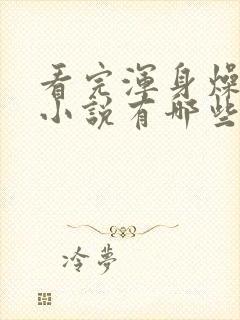 看完渾身燥
小說有哪些
冷夢